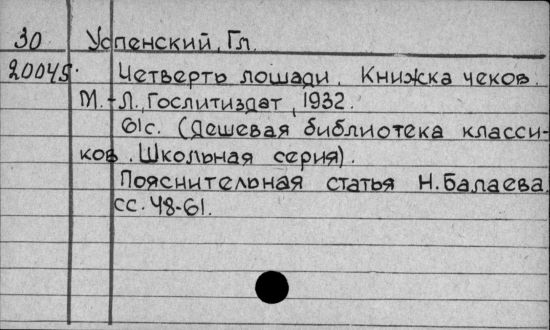 30 Успенский, Гл.
20045. Четверть лошади. Книжка чеков.
М.-Л., Гослитиздат, 1932.
61с. (Дешевая библиотека класси-
ков. Школьная серия).
Пояснительная статья Н.Балаева,
сс.48-61.